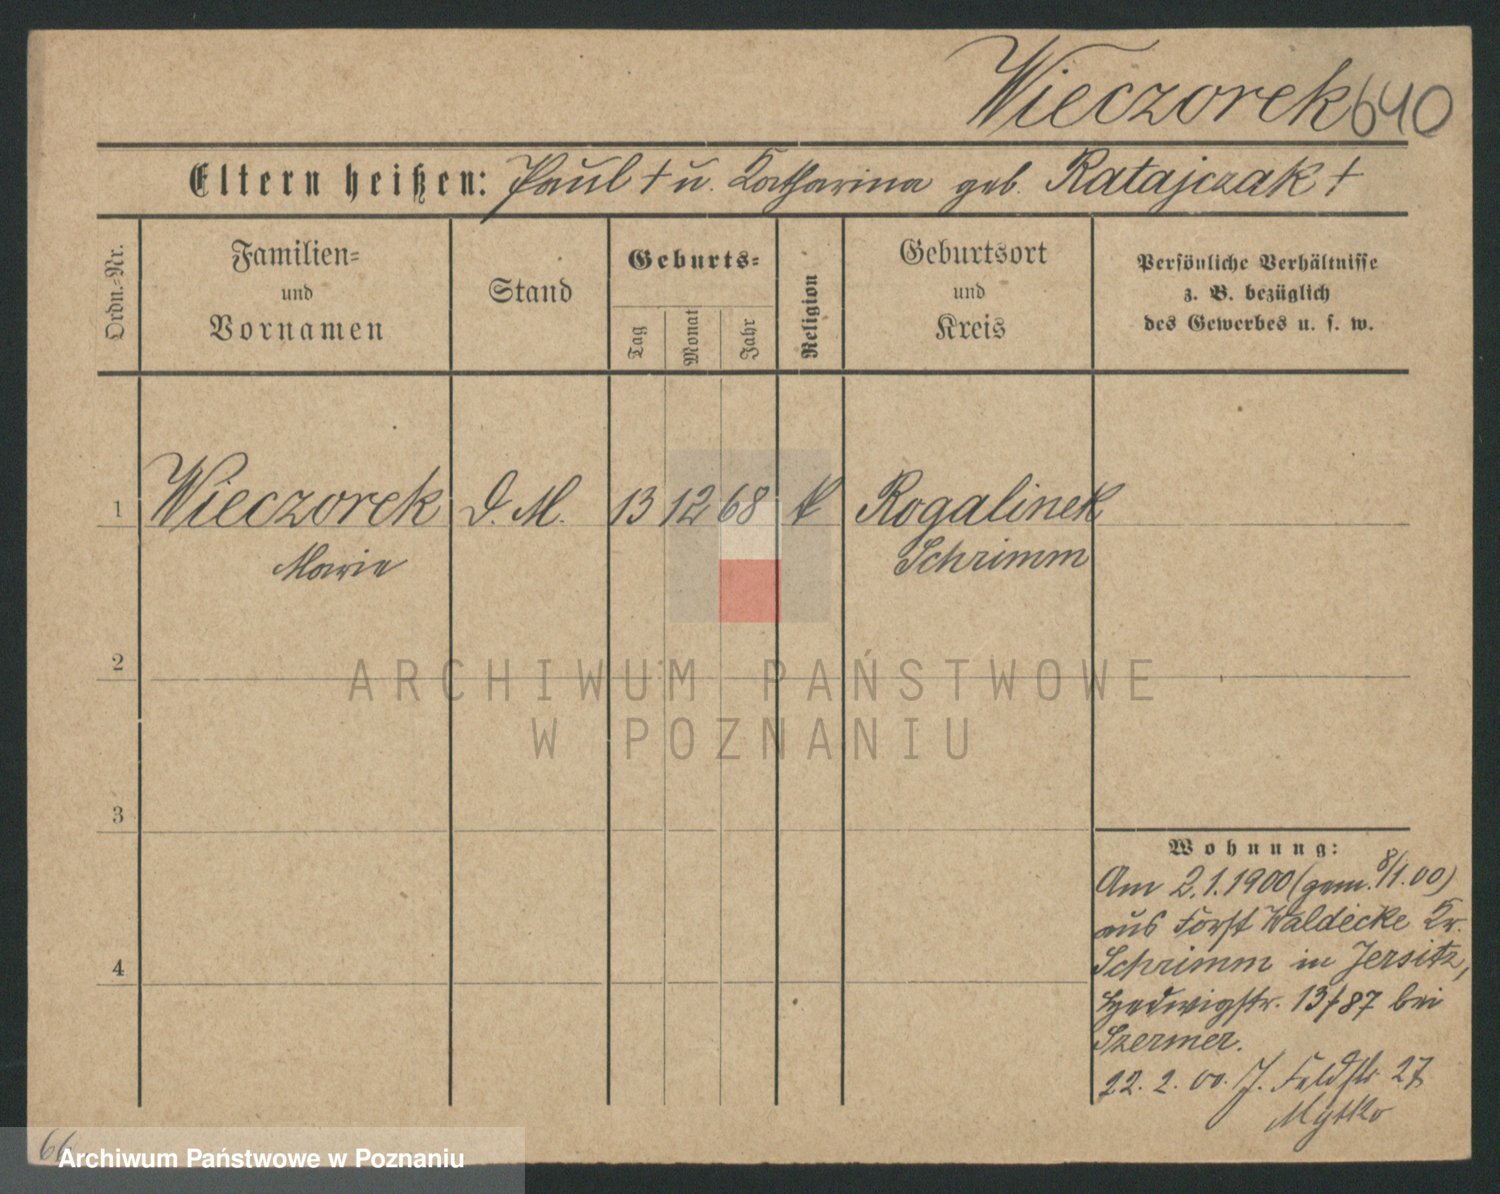 Wieczorek 640
Eltern heißen: Paul † u. Katharina geb. Ratajczak †
Ordn.-Nr.
Familien-
und
Vornamen
Stand
Geburts-
Tag
Monat
Jahr
Religion
Geburtsort
und
Kreis
Persönliche Verhältnisse
z. B. bezüglich
des Gewerbes u. s. w.
1 Wieczorek D. M. 13 12 68 k Rogalinek
Marie Schrimm
2
3
4
Wohnung:
Am 2.1.1900 (gem. 8/1.00)
aus Forst Waldecke Kr.
Schrimm in Jersitz,
Hedwigstr. 13/87 bei
Szermer.
22. 2. 00. J. Feldstr. 27
Mytko
66
ARCHIWUM PAŃSTWOWE
W POZNANIU
Archiwum Państwowe w Poznaniu